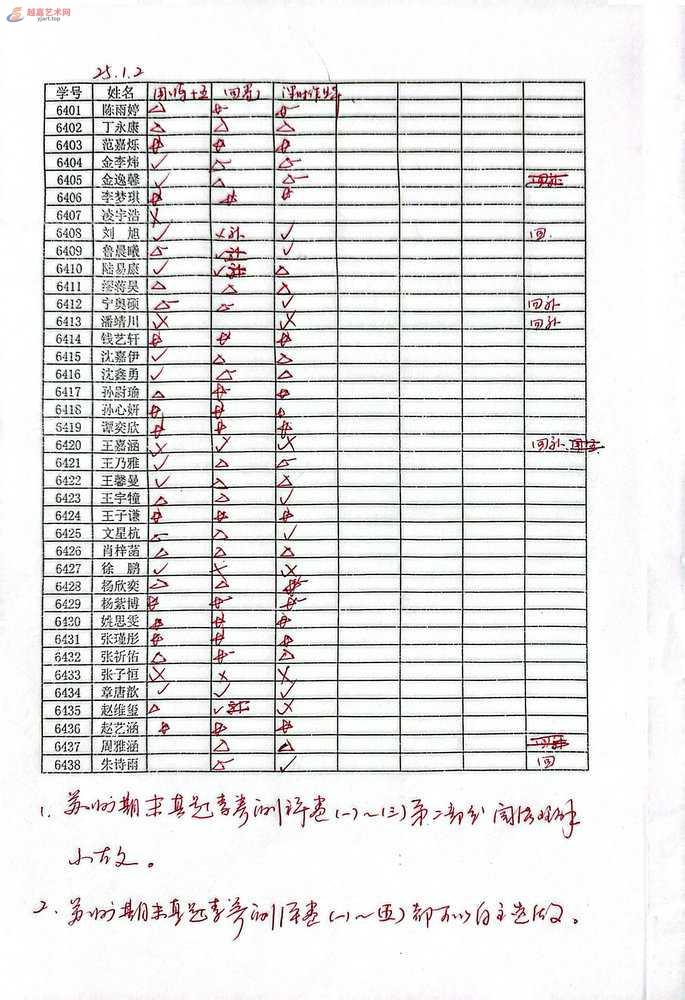 越嘉艺术网
yjart.top
25.1.2
学号 姓名
6401 陈雨婷 △
6402 丁永康 △ △ △
6403 范嘉烁
6404 金李炜 ✓
6405 金逸馨 ✓ △
6406 李梦琪
6407 凌宇浩 ✗
6408 刘旭 ✓ ✗补 ✓ 回.
6409 鲁晨曦 ✓
6410 陆易康 ✓ △
6411 昊 △ △
6412 宁奥硕 ✓ 回补
6413 潘靖川 ✗ ✗ 回补
6414 钱艺轩
6415 沈嘉伊 ✓ △ △
6416 沈鑫勇 ✓ △
6417 孙尉瑜 △
6418 孙心妍
6419 谭奕欣
6420 王嘉涵 ✗ ✓ ✗ 回补
6421 王乃雅 ✓ △
6422 王馨曼 ✓ △ △
6423 王宇犝 △ △ ✓
6424 王子谦
6425 文星杭 △ ✓
6426 肖梓菡 △ △ △
6427 徐鹏 ✓ ✗ ✗
6428 杨欣奕 △ △
6429 杨紫博
6430 姚思雯
6431 张瑾彤
6432 张祈佑 △ △
6433 张子恒 ✗ ✗ ✗
6434 章唐歆 ✓ ✓ ✓
6435 赵维玺 △ ✓ ✗
6436 赵艺涵
6437 周雅涵 △ △
6438 朱诗雨 ✓ 回
1. 苏州期末真题 卷(一)~(三)第二部分阅读理解
小古文。
2. 苏州期末真题 卷(一)~(五)都可以自主选做。